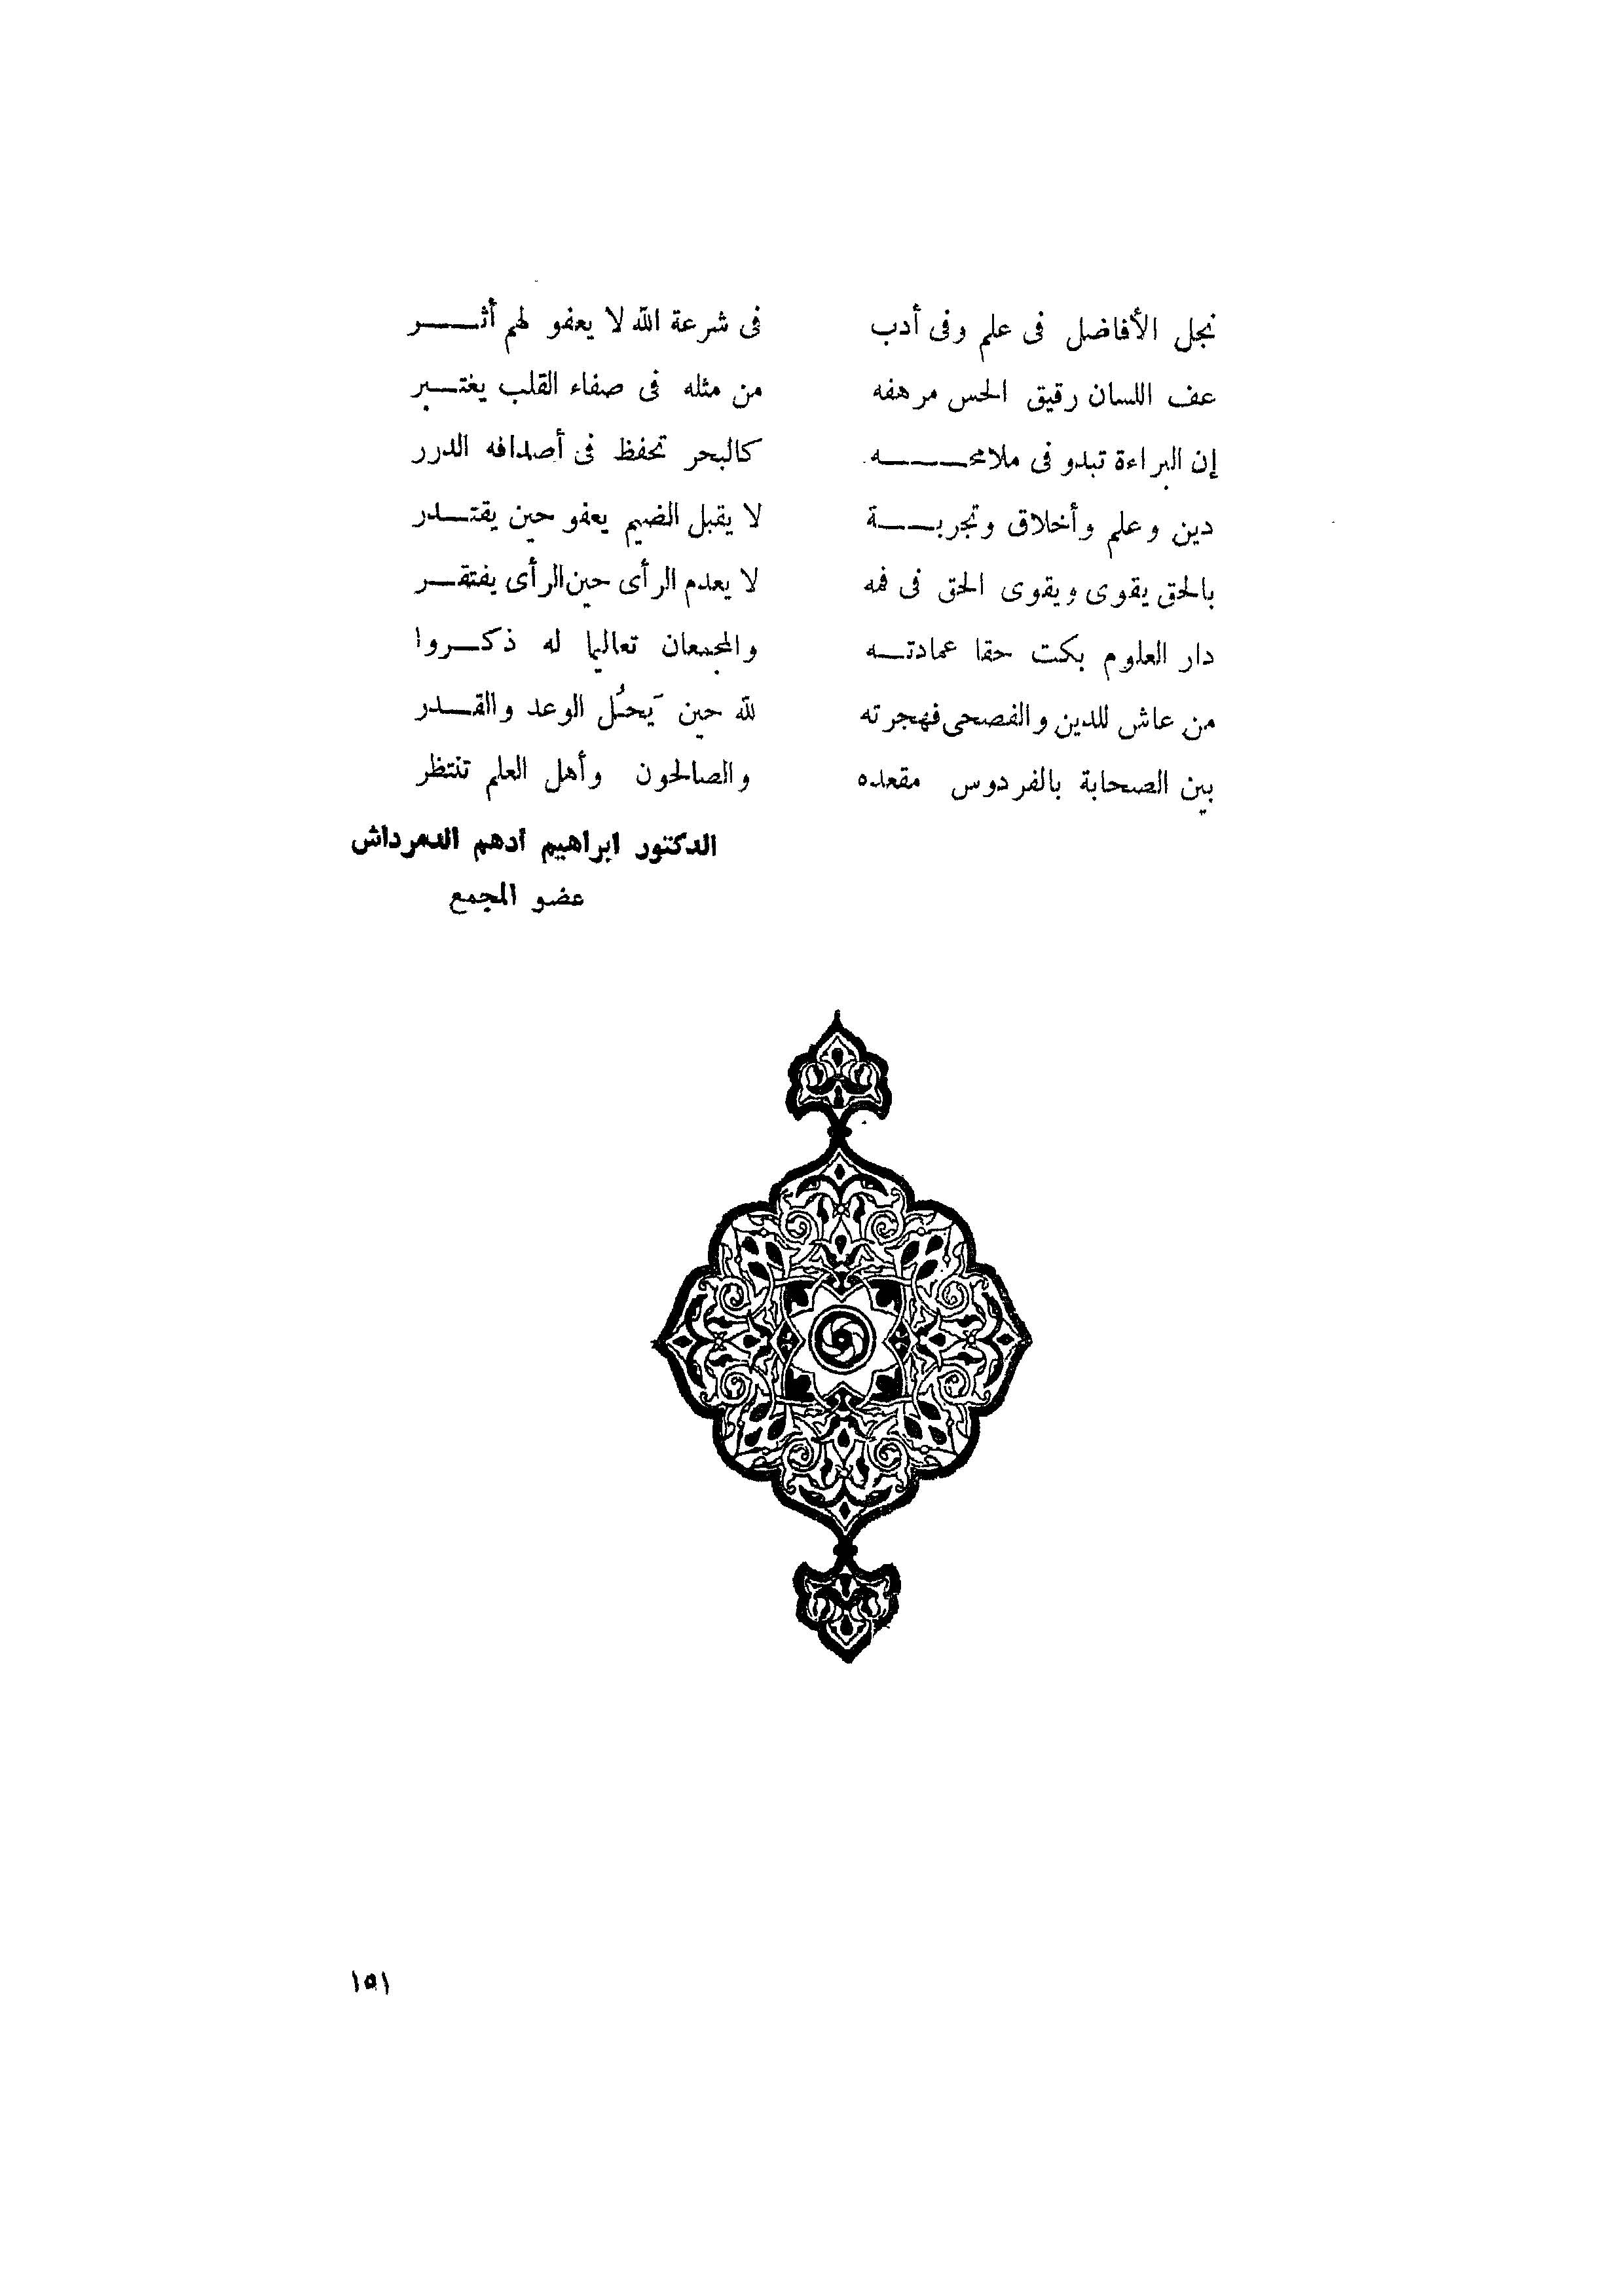 نجل الأفاضل فى علم وفى أدب فى شرعة الله لا يعفو لهم أثـــر
عف اللسان رقيق الحس مرهفه من مثله فى صفاء القلب يغتـــبر
إن البراءة تبدو فى ملامحــــــه كالبحر تحفظ فى أصدافه الدرر
دين وعلم وأخلاق وتجربـــــة لا يقبل الضيم يعفو حين يقتـــدر
بالحق يقوى ويقوى الحق فى فمه لا يعدم الرأى حين الرأى يفتقـــر
دار العلوم بكت حقا عمادتـــه والمجمعان تعاليا له ذكـــروا
من عاش للدين والفصحى فهجرته لله حين يَحـُل الوعد والقـــدر
بين الصحابة بالفردوس مقعده والصالحون وأهل العلم تنتظر
الدكتور ابراهيم أدهم الدمرداش
عضو المجمع
١٥١